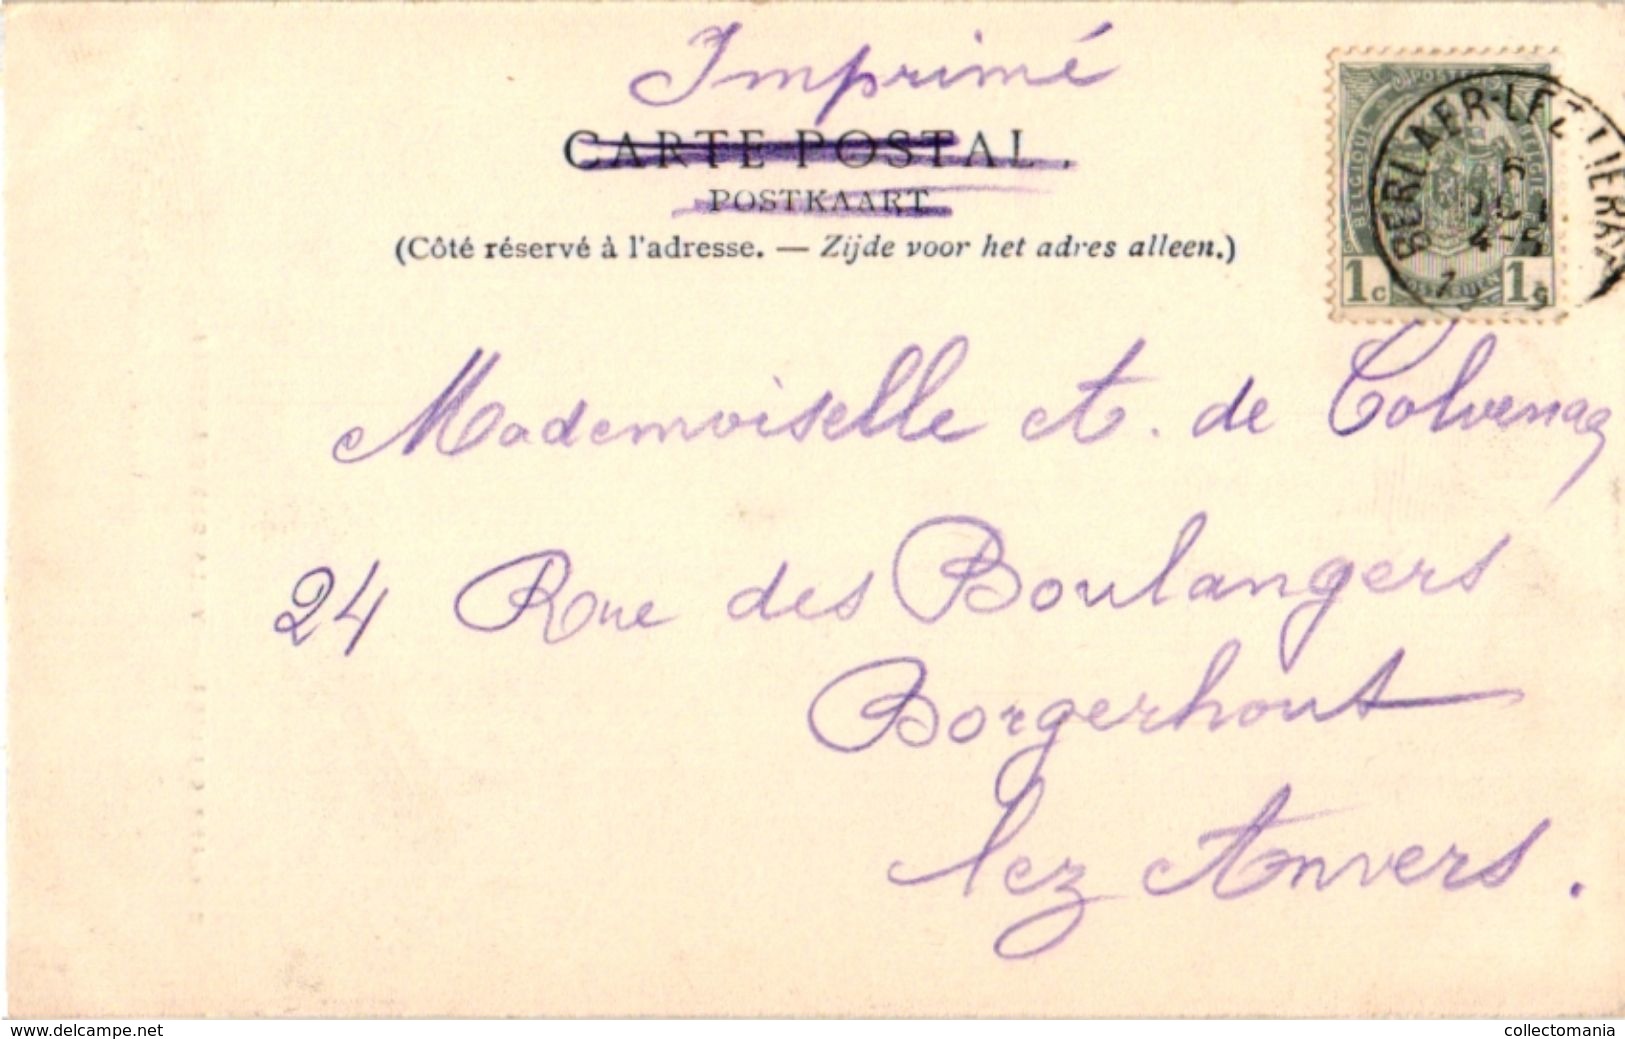 Imprimé
CARTE POSTAL.
POSTKAART
(Côté réservé à l'adresse. — Zijde voor het adres alleen.)
BELGIQUE POSTES BELGIË
1c 1c
BERLAER-LEZ-LIERRE
5
4-5
Mademoiselle A. de Colvenaer
24 Rue des Boulangers
Borgerhout
lez Anvers.
www.delcampe.net
collectomania